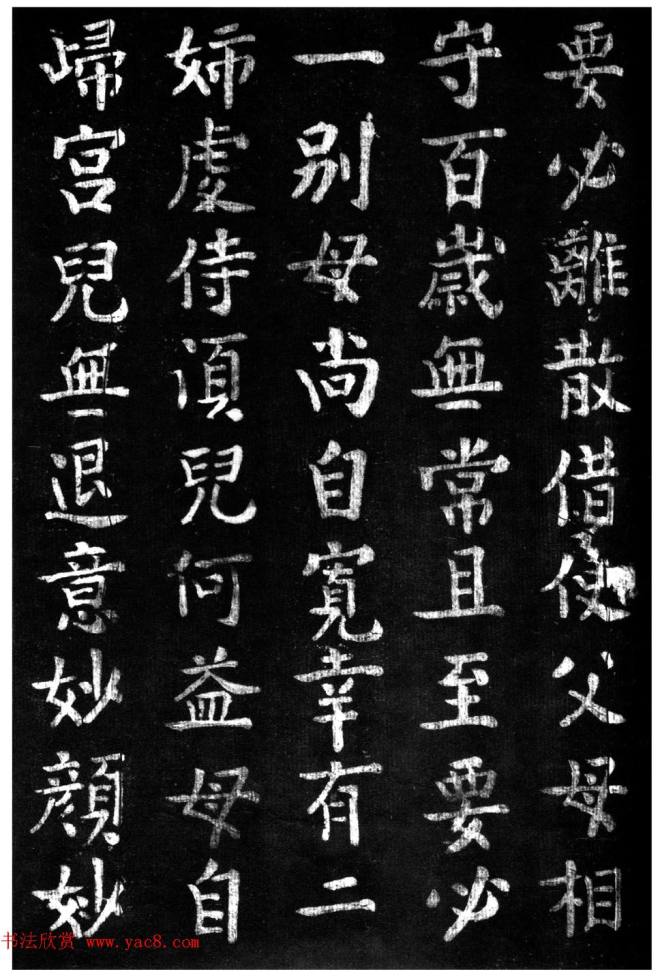 要必離散借使父母相
守百歳無常且至要必
一别母尚自寛幸有二
姉處侍湏兒何益母自
歸宫兒無退意妙顔妙
书法欣赏 www.yac8.com